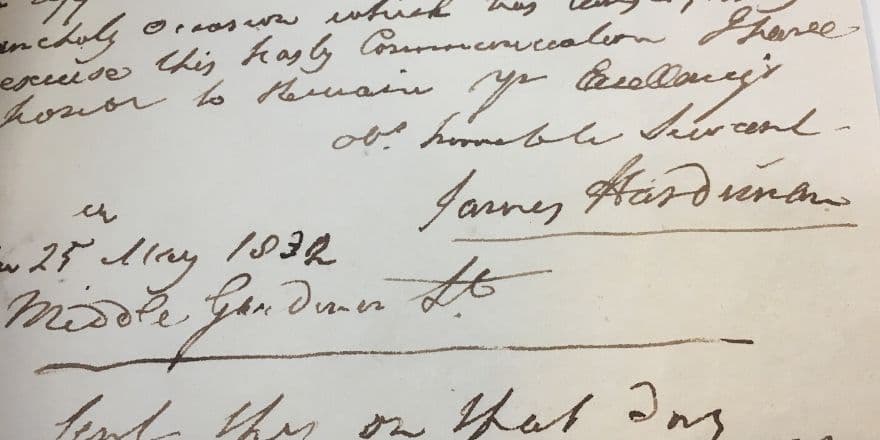 ncholy occasion which has
excuse this hasty Communication I have
honor to Remain yr Excellency's
obt. humble Servant
James Hardiman
25 May 1832
Middle Gardiner St.
Sent this on that day